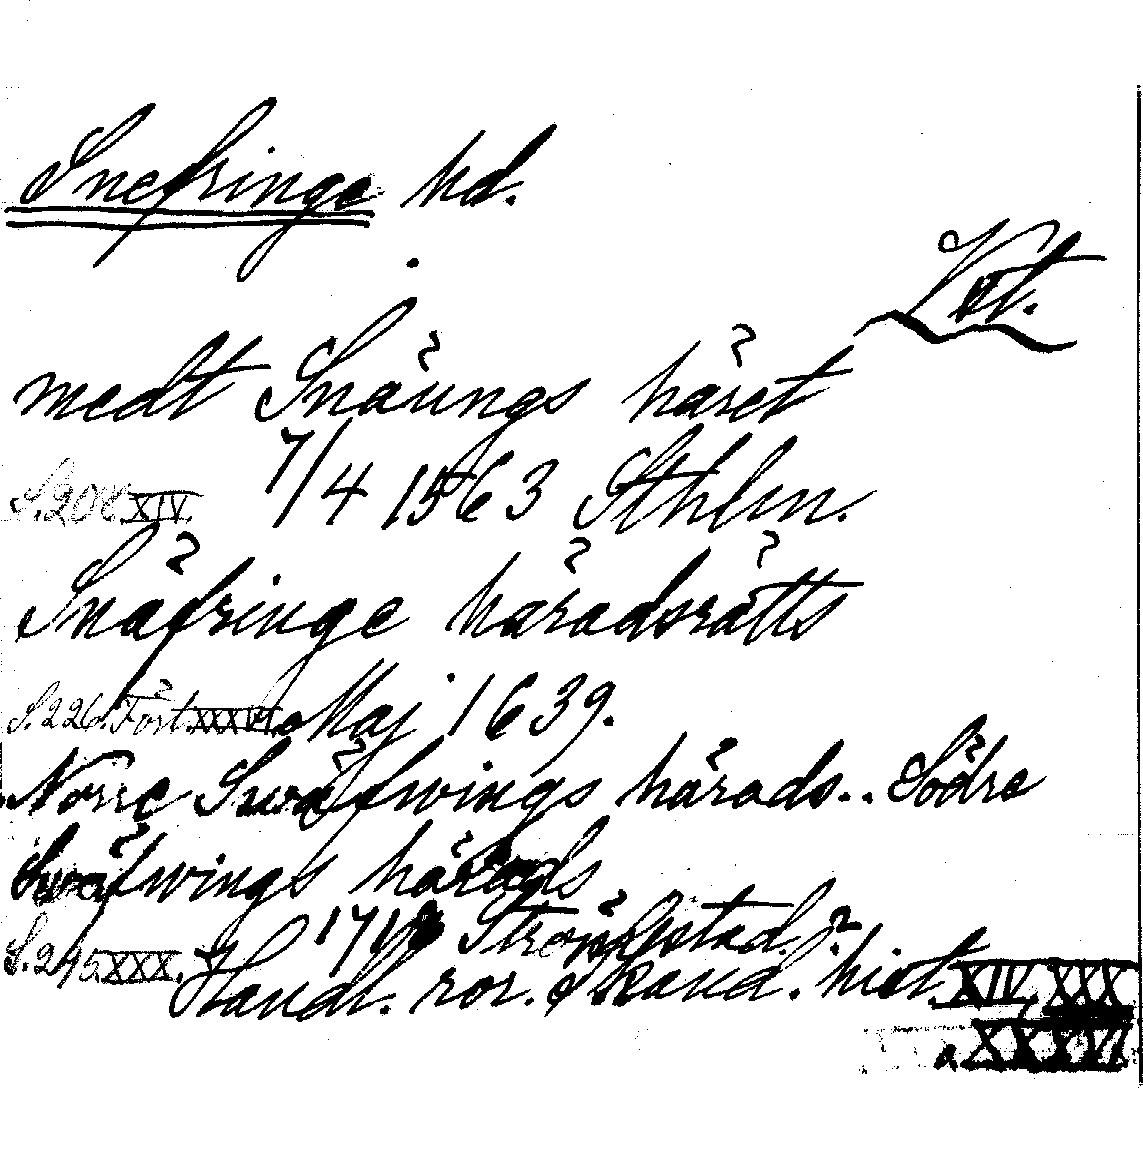 Snefringe hd.
Vstl.
medt Snäüngs häret
S. 208 XIV. 7/4 1563 Sthlm.
Snäfringe häradsrätts
S. 226. Fört. XXXVI. Maj 1639.
Norre Snäfwings härads.. Södre
Snäfwings härads
S. 245 XXX. 1718 Strömstad.
Handl. rör. Skand. hist. XIV, XXX
o. XXXVI